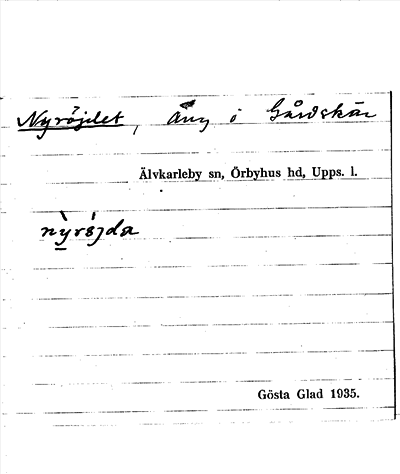 Nyröjdet, Äng i Gårdskär
Älvkarleby sn, Örbyhus hd, Upps. l.
nỳröjda
Gösta Glad 1935.